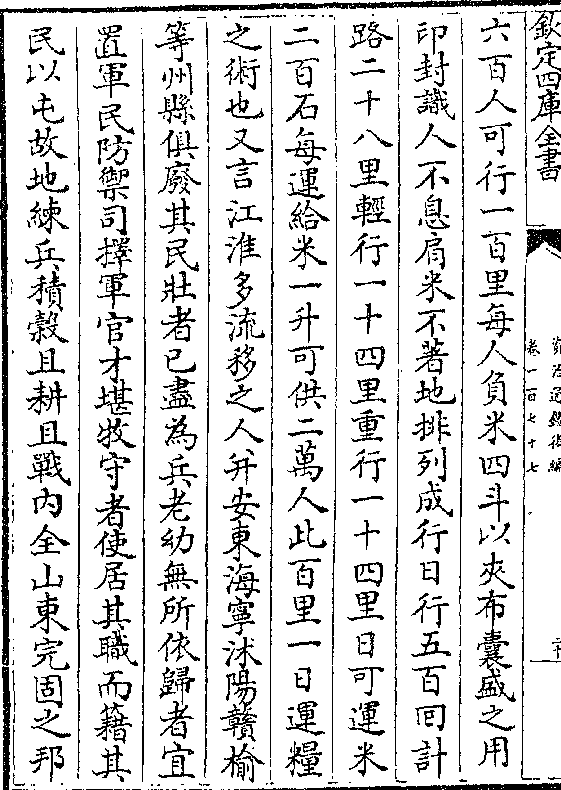 欽定四庫全書
資治通鑑後編
卷一百七十七
六百人可行一百里每人負米四斗以夾布囊盛之用
印封識人不息肩米不著地排列成行日行五百回計
路二十八里輕行一十四里重行一十四里日可運米
二百石每運給米一升可供二萬人此百里一日運糧
之術也又言江淮多流移之人并安東海寧沭陽贛榆
等州縣俱廢其民壯者已盡為兵老幼無所依歸者宜
置軍民防禦司擇軍官才堪牧守者使居其職而籍其
民以屯故地練兵積榖且耕且戰内全山東完固之邦